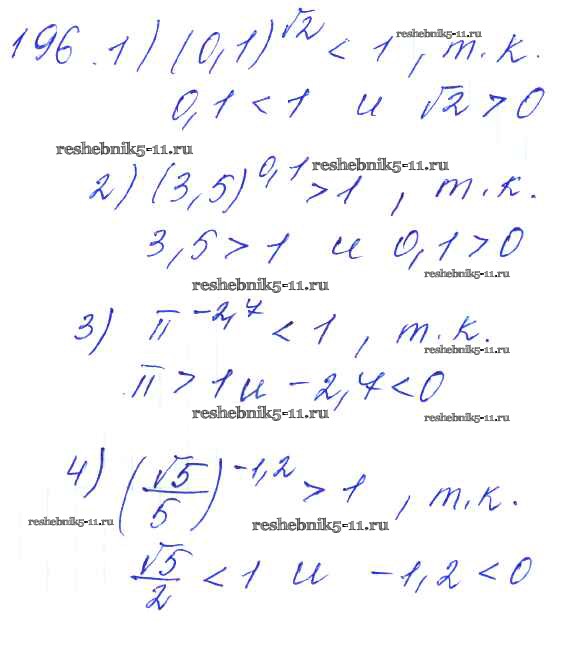 196. 1) (0,1)^√2 < 1, т.к.
reshebnik5-11.ru
0,1 < 1 и √2 > 0
reshebnik5-11.ru
reshebnik5-11.ru
2) (3,5)^0,1 > 1, т.к.
3,5 > 1 и 0,1 > 0
reshebnik5-11.ru
reshebnik5-11.ru
3) π^-2,7 < 1, т.к.
reshebnik5-11.ru
π > 1 и -2,7 < 0
reshebnik5-11.ru
reshebnik5-11.ru
4) (√5/5)^-1,2 > 1, т.к.
reshebnik5-11.ru
reshebnik5-11.ru
√5/2 < 1 и -1,2 < 0